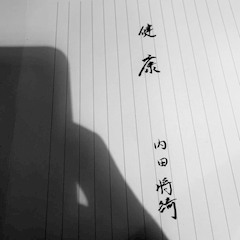 健康
内田将綺